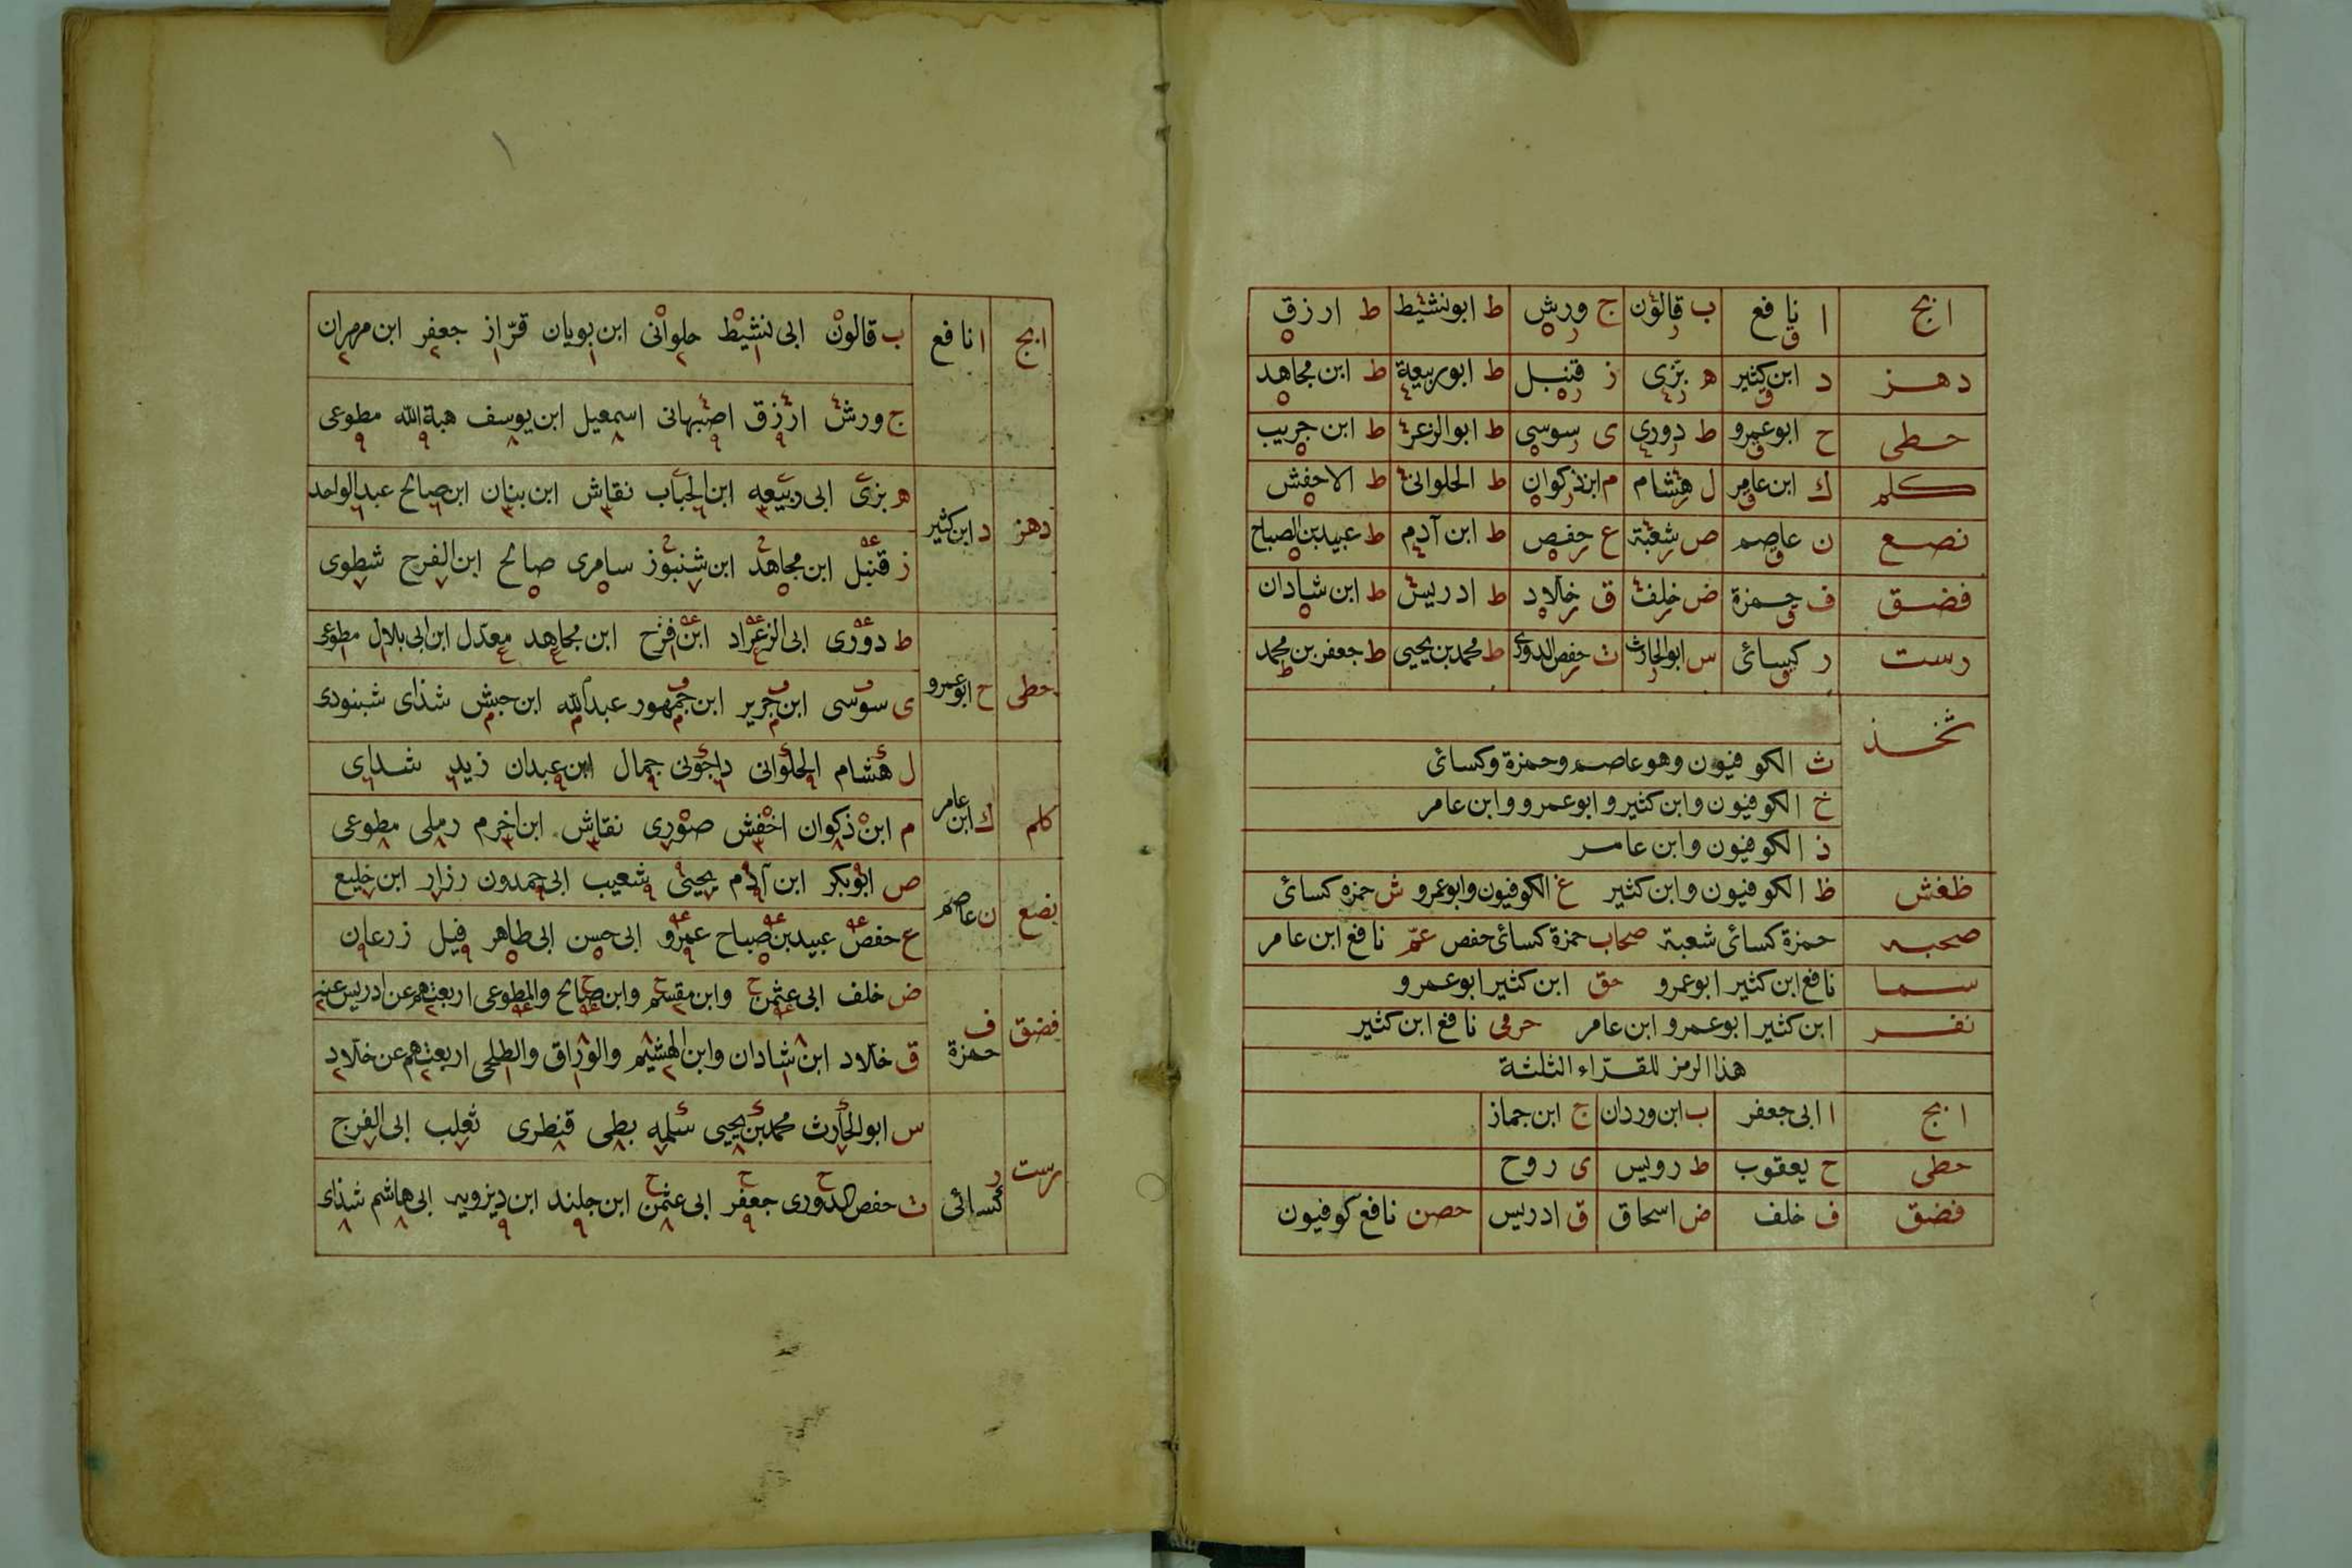 ابج ا نافع ب قالون ج ورش ط ابونشيط ط ازرق
دهز د ابن كثير ه بزى ز قنبل ط ابوربيعة ط ابن مجاهد
حطى ح ابوعمرو ط دورى ى سوسى ط ابوالزعر ط ابن جريب
كلم ك ابن عامر ل هشام م ابن ذكوان ط الحلوانى ط الاخفش
نصع ن عاصم ص شعبة ع حفص ط ابن آدم ط عبيد بن الصباح
فضق ف حمزة ض خلف ق خلاد ط ادريس ط ابن شادان
رست ر كسائى س ابوالحارث ث حفص الدورى ط محمد بن يحيى ط جعفر بن محمد
ثخذ
ث الكوفيون وهو عاصم وحمزة وكسائى
خ الكوفيون وابن كثير وابوعمرو وابن عامر
ذ الكوفيون وابن عامر
ظغش ظ الكوفيون وابن كثير غ الكوفيون وابوعمرو ش حمزه كسائى
صحبه حمزة كسائى شعبة صحاب حمزة كسائى حفص عمّ نافع ابن عامر
سما نافع ابن كثير ابوعمرو حق ابن كثير ابوعمرو
نفر ابن كثير ابوعمرو ابن عامر حرمى نافع ابن كثير
هذا الرمز للقرّاء الثلثة
ابج ا ابى جعفر ب ابن وردان ج ابن جماز
حطى ح يعقوب ط رويس ى روح
فضق ف خلف ض اسحاق ق ادريس حصن نافع كوفيون
ابج ا نافع ب قالون ابى نشيط حلوانى ابن بويان قزّاز جعفر ابن مهران
ج ورش ازرق اصبهانى اسمعيل ابن يوسف هبة الله مطوعى
دهز د ابن كثير ه بزى ابى ربيعه ابن الحباب نقاش ابن بنان ابن صالح عبد الواحد
ز قنبل ابن مجاهد ابن شنبوز سامرى صالح ابن الفرج شطوى
حطى ح ابوعمرو ط دورى ابى الزعراد ابن فرح ابن مجاهد معدل ابن ابى بلال مطوعى
ى سوسى ابن جرير ابن جمهور عبد الله ابن حبش شذاى شبنودى
كلم ك ابن عامر ل هشام الحلوانى داجونى جمال ابن عبدان زيد شذاى
م ابن ذكوان اخفش صورى نقاش ابن اخرم رملى مطوعى
نصع ن عاصم ص ابوبكر ابن آدم يحيى شعيب ابى حمدون رزار ابن خليع
ع حفص عبيد بن صباح عمرو ابى حسن ابى طاهر فيل زرعان
فضق ف حمزة ض خلف ابى عثمن وابن مقسم وابن صالح والمطوعى اربعتهم عن ادريس عنه
ق خلاد ابن شادان وابن الهشيم والوراق والطلحى اربعتهم عن خلاد
رست ر كسائى س ابوالحارث محمد بن يحيى سلمه بطى قنطرى ثعلب ابى الفرج
ث حفص الدورى جعفر ابى عثمن ابن جلند ابن ديزويه ابى هاشم شذاى